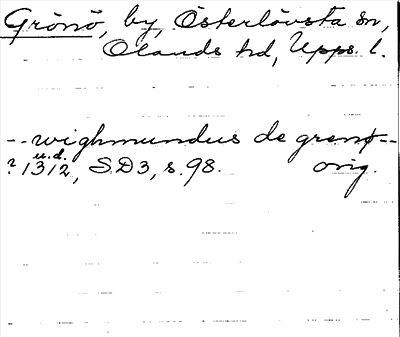 Grönö, by, Österlövsta sn,
Olands hd, Upps. l.
-- wighmundus de grenø --
u.d.
? 1312, SD3, s. 98. orig.